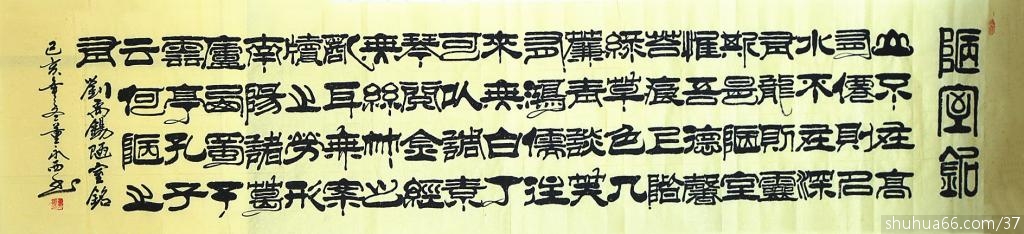 陋室銘
山不在高
有僊則名
水不在深
有龍則靈
斯是陋室
惟吾德馨
苔痕上階
綠草色入
簾青談笑
有鴻儒往
來無白丁
可以調素
琴閱金經
無絲竹之
亂耳無案
牘之勞形
南陽諸葛
廬西蜀子
雲亭孔子
云何陋之
有
劉禹錫陋室銘
己亥年冬
shuhua66.com/37